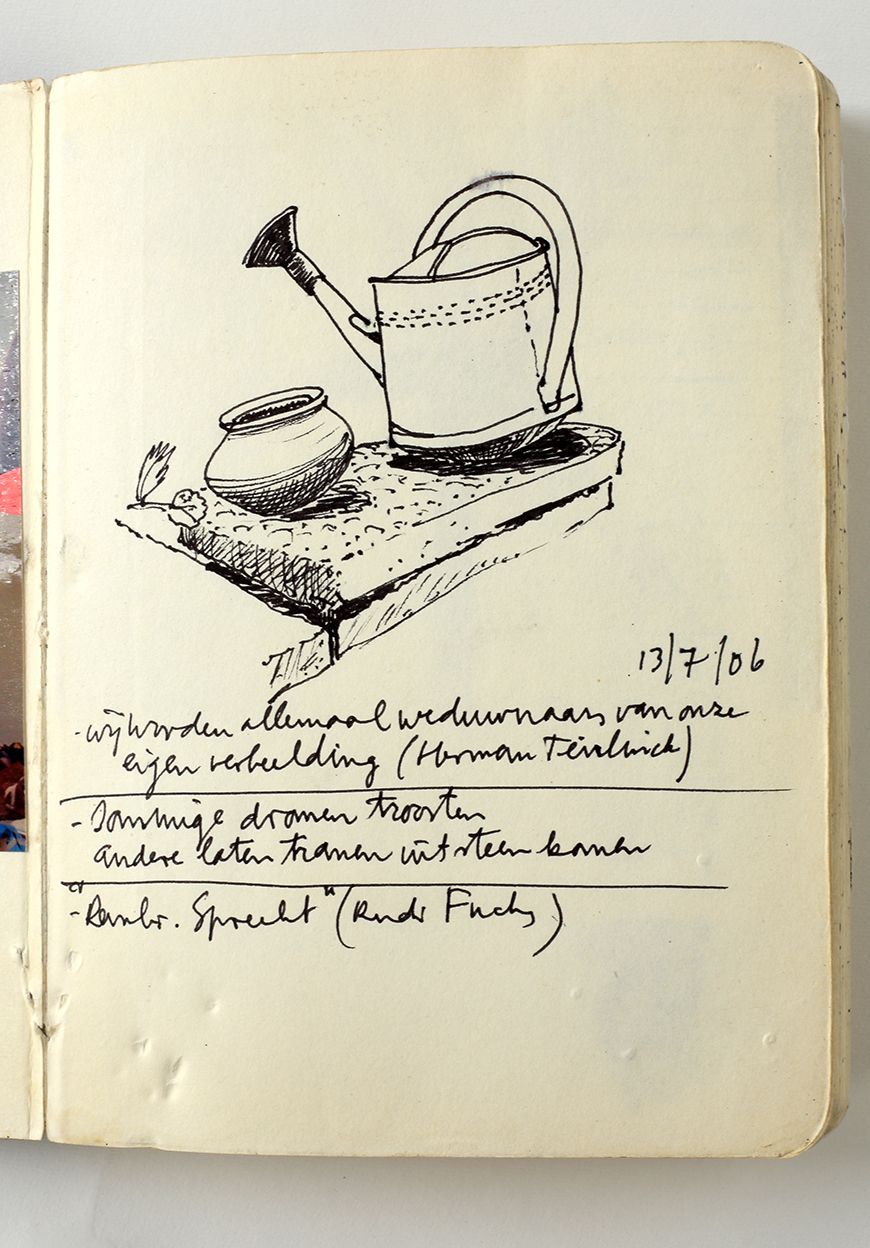 13/7/06
- wij worden allemaal weduwnaars van onze
eigen verbeelding (Herman Teirlinck)
- Sommige dromen troosten
andere laten tranen uit steen komen
- "Rembr. Spreekt" (Rudi Fuchs)